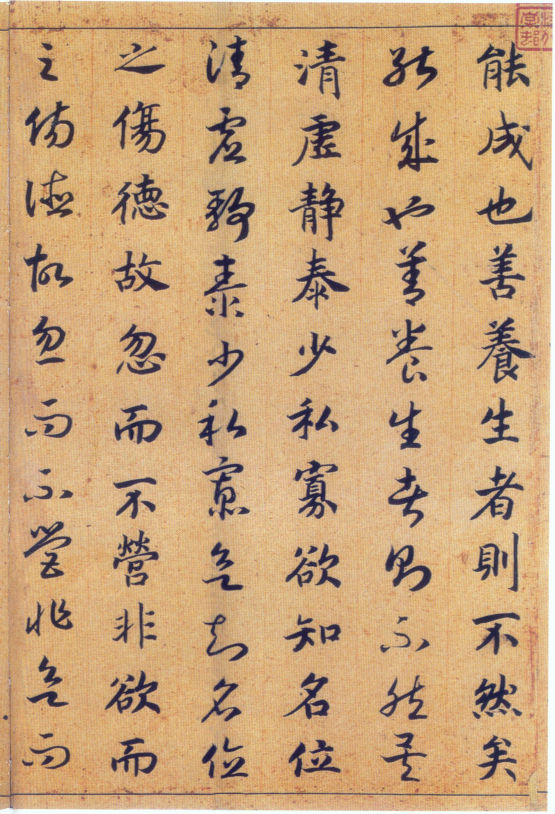 能成也善養生者則不然矣
能成也善養生者則不然矣
清虛静泰少私寡欲知名位
清虛静泰少私寡欲知名位
之傷德故忽而不營非欲而
之傷德故忽而不營非欲而